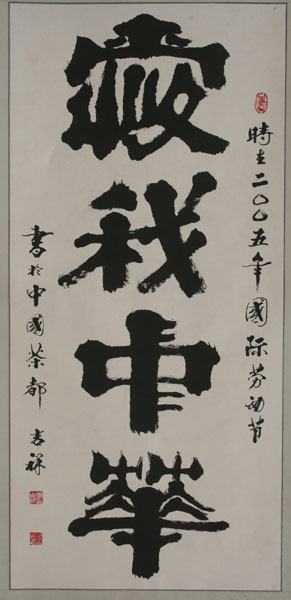 時在二〇〇五年國际劳动节
愛我中華
書於中國茶都 吉祥